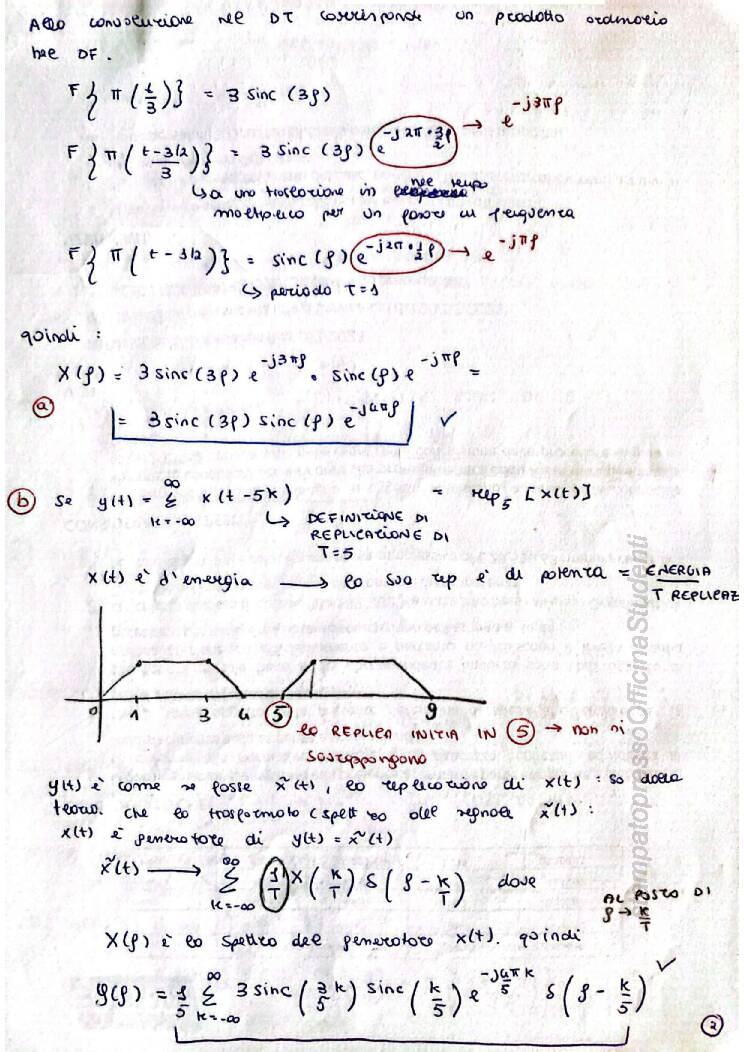 Alla convoluzione nel DT corrisponde un prodotto ordinario
nel DF.
F{π(t/3)} = 3 sinc(3f)
F{π((t-3/2)/3)} = 3 sinc(3f) e^(-j2π·3/2 f) → e^(-j3πf)
↳ a una traslazione in nel tempo
moltiplico per un fasore in frequenza
F{π(t-1/2)} = sinc(f) e^(-j2π·1/2 f) → e^(-jπf)
↳ periodo T=1
quindi :
X(f) = 3 sinc(3f) e^(-j3πf) · sinc(f) e^(-jπf) =
(a) = 3 sinc(3f) sinc(f) e^(-j4πf) ✓
(b) Se y(t) = Σ_(k=-∞)^∞ x(t-5k) = rep_5 [x(t)]
↳ DEFINIZIONE DI
REPLICAZIONE DI
T=5
x(t) è d'energia → la sua rep è di potenza = ENERGIA / T REPLICAZ
0 1 3 4 (5) 9
la REPLICA INIZIA IN (5) → non si
sovrappongono
y(t) è come se fosse x̃(t), la replicazione di x(t) : so dalla
teoria che la trasformata (spettro del segnale x̃(t) :
x(t) è generatore di y(t) = x̃(t)
x̃(t) → Σ_(k=-∞)^∞ (1/T) X(k/T) δ(f - k/T) dove
AL POSTO DI
f → k/T
X(f) è lo spettro del generatore x(t). quindi
Y(f) = 1/5 Σ_(k=-∞)^∞ 3 sinc(3/5 k) sinc(k/5) e^(-j4π/5 k) δ(f - k/5) ✓
(2)
mpatopressoOfficinaStudenti